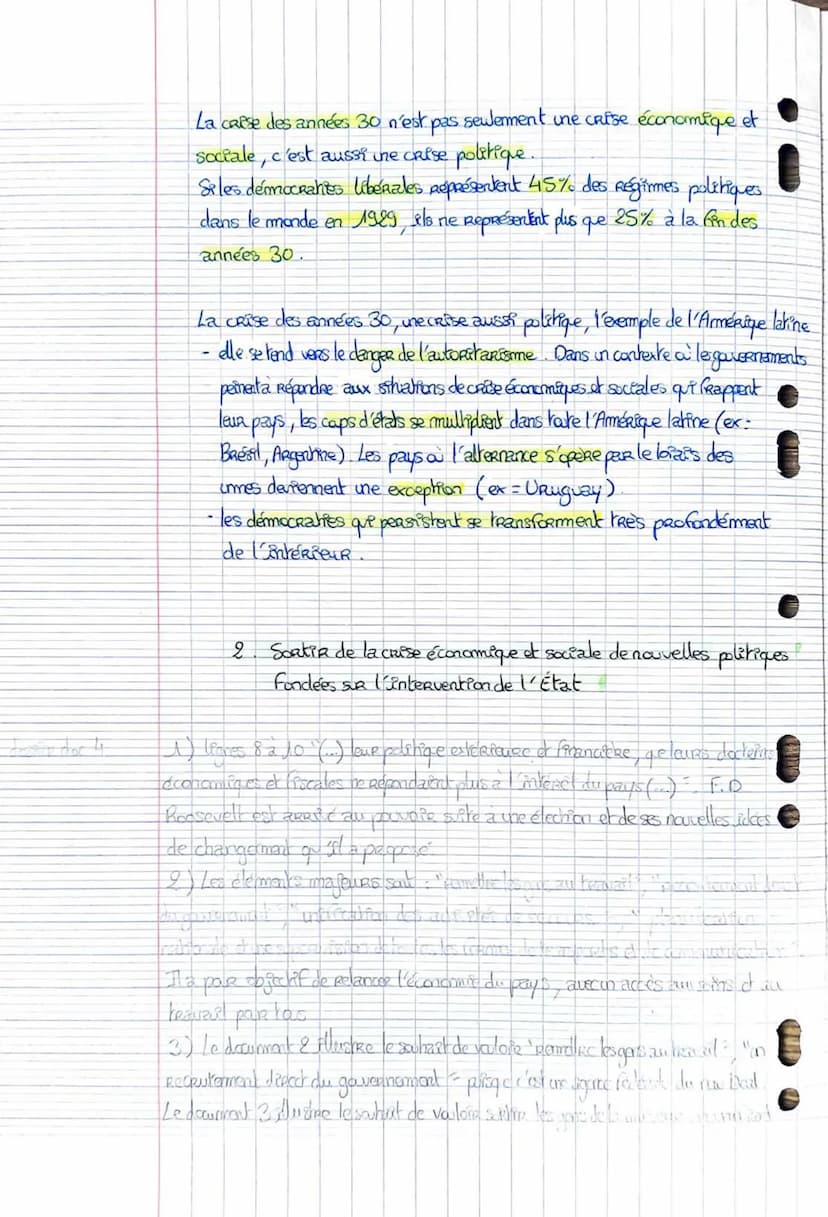 La crise des années 30 n'est pas seulement une crise économique et
sociale, c'est aussi une crise politique.
Si les démocraties libérales représentent 45% des régimes politiques
dans le monde en 1929, ils ne représentent plus que 25% à la fin des
années 30.
La crise des années 30, une crise aussi politique, l'exemple de l'Amérique latine
- elle se tend vers le danger de l'autoritarisme. Dans un contexte où les gouvernements
peinent à répondre aux situations de crise économiques et sociales qui frappent
leur pays, les coups d'états se multiplient dans toute l'Amérique latine (ex:
Brésil, Argentine). Les pays où l'alternance s'opère par le biais des
urnes deviennent une exception (ex = Uruguay).
- les démocraties qui persistent se transforment très profondément
de l'intérieur.
2. Sortir de la crise économique et sociale de nouvelles politiques
fondées sur l'intervention de l'État
doc 4
1) lignes 8 à 10 "(...) leur politique extérieure et financière, que leurs doctrines
économiques et fiscales ne répondaient plus à l'intérêt du pays (...)". F.D
Roosevelt est arrivé au pouvoir suite à une élection et de ses nouvelles idées
de changement qu'il a proposé
2) Les éléments majeurs sont : "remettre les gens au travail", "recrutement direct
du gouvernement", "unification des activités de secours", "planification
nationale et une supervision de toutes les formes de transports et de communication".
Il a pour objectif de relancer l'économie du pays, avec un accès aux soins et au
travail par tous
3) Le document 2 illustre le souhait de vouloir "remettre les gens au travail", "un
recrutement direct du gouvernement" puisque c'est une agence fédérale du New Deal.
Le document 3 illustre le souhait de vouloir sortir les gens de la